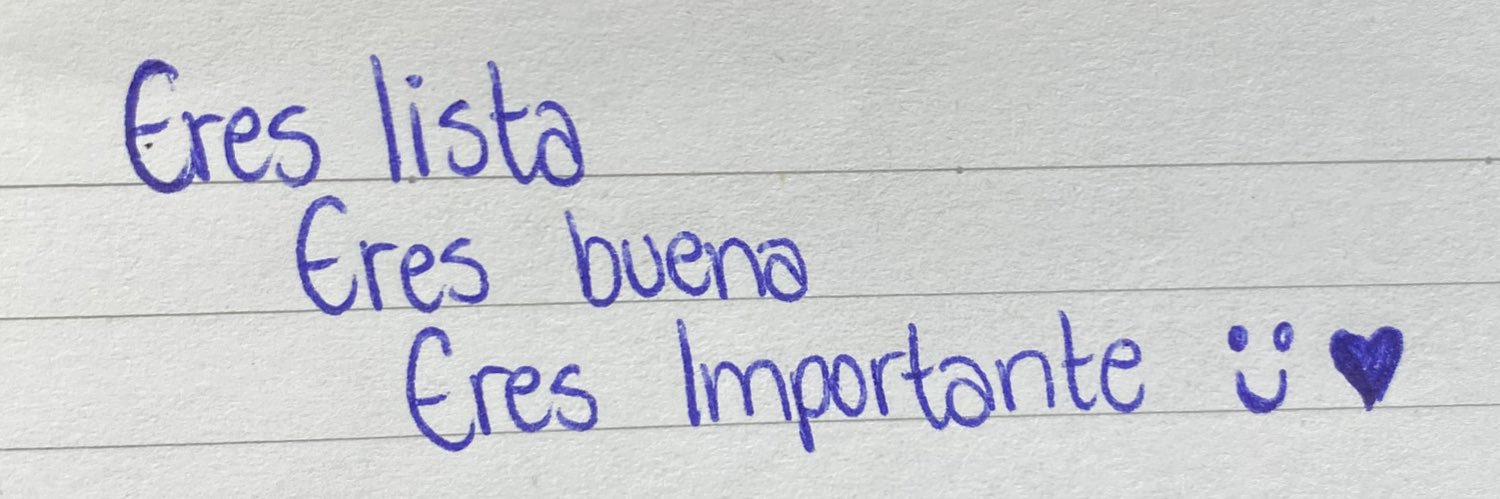 Eres lista
Eres buena
Eres Importante ü ♥